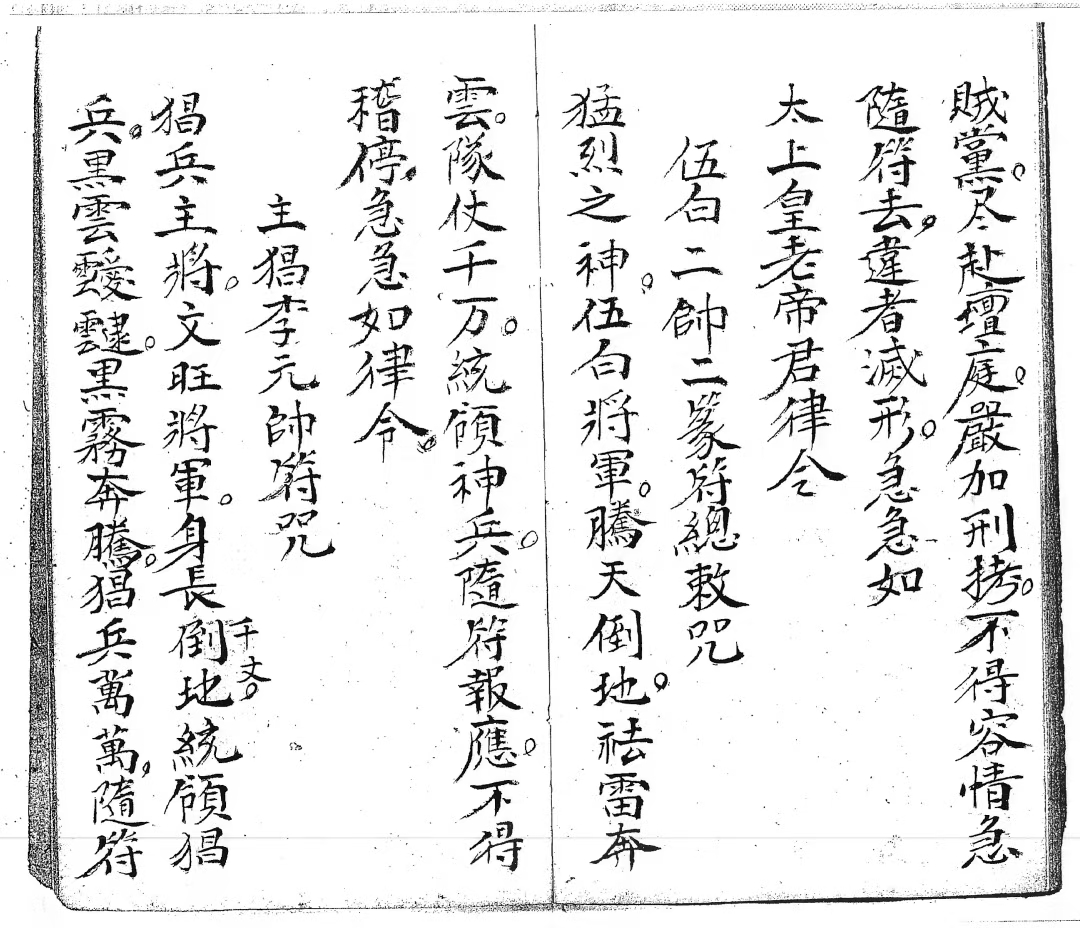 賊黨。尽赴壇庭。嚴加刑拷。不得容情急
隨符去。違者滅形。急急如
太上皇老帝君律令
伍白二帥二篆符總敕咒
猛烈之神。伍白將軍。騰天倒地。祛雷奔
雲。隊仗千万。統領神兵。隨符報應。不得
稽停。急急如律令。
主猖李元帥符咒
猖兵主將。文旺將軍。身長千丈。倒地統領猖
兵。黑雲靉靆。黑霧奔騰。猖兵萬萬。隨符